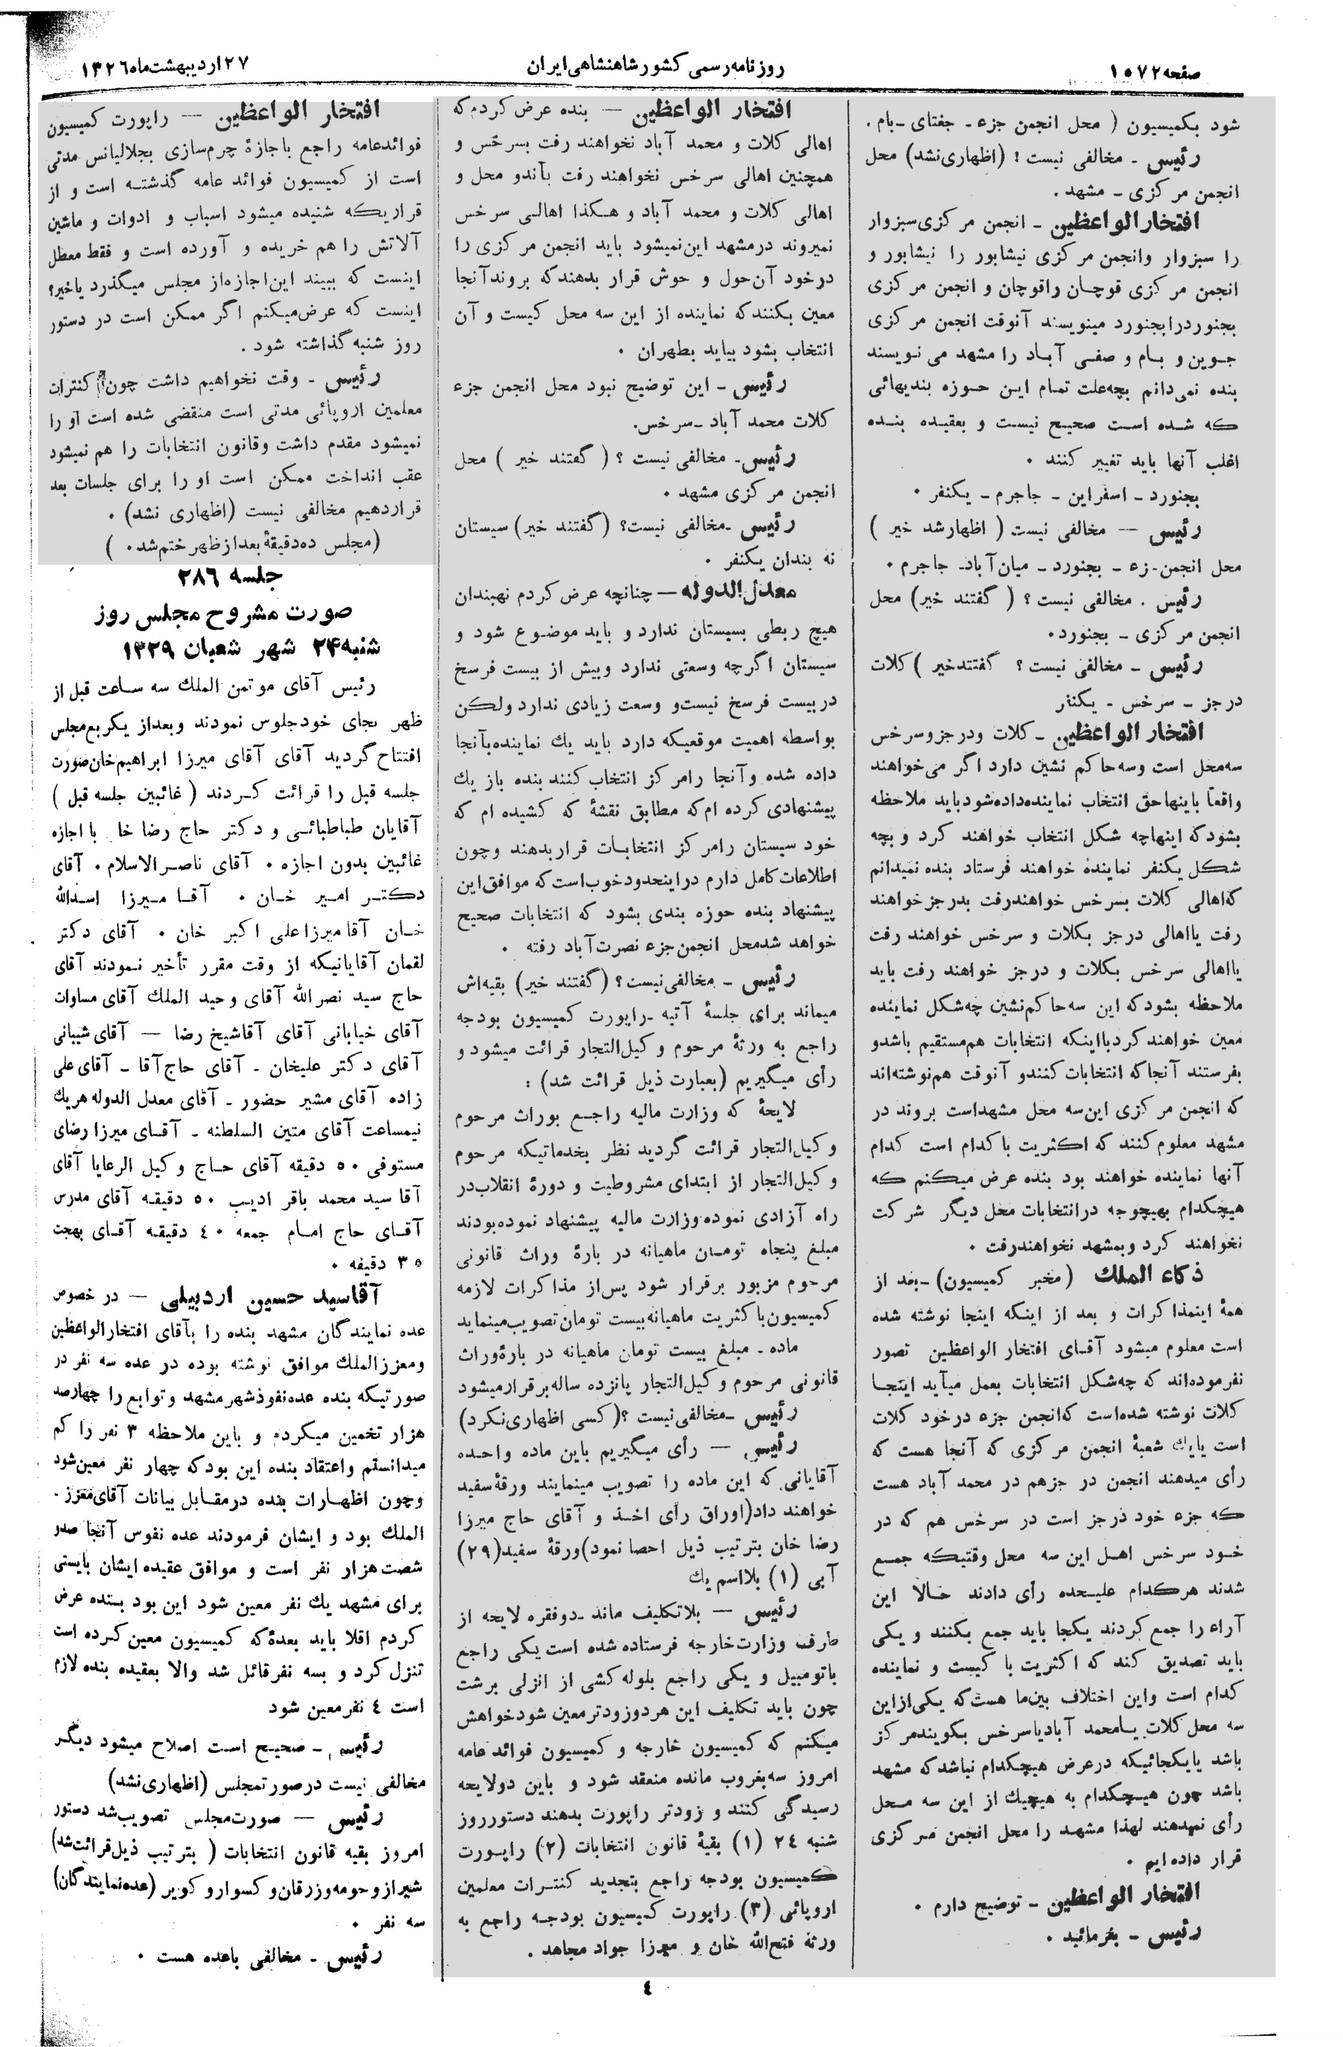 صفحه ۱۵۷۲
روزنامه رسمی کشور شاهنشاهی ایران
۲۷ اردیبهشت ماه ۱۳۲۶
شود بکمیسیون ( محل انجمن جزء ـ جغتای ـ بام .
رئیس ـ مخالفی نیست ! (اظهاری نشد) محل
انجمن مرکزی ـ مشهد .
افتخار الواعظین ـ انجمن مرکزی سبزوار
را سبزوار وانجمن مرکزی نیشابور را نیشابور و
انجمن مرکزی قوچان راقوچان و انجمن مرکزی
بجنورد رابجنورد مینویسند آنوقت انجمن مرکزی
جوین و بام و صفی آباد را مشهد می نویسند
بنده نمی‌دانم بچه علت تمام این حوزه بندیهائی
که شده است صحیح نیست و بعقیده بنده
اغلب آنها باید تغییر کنند .
بجنورد ـ اسفراین ـ جاجرم ـ یکنفر .
رئیس — مخالفی نیست ( اظهار شد خیر )
محل انجمن جزء ـ بجنورد ـ میان آباد ـ جاجرم .
رئیس . مخالفی نیست ؟ ( گفتند خیر) محل
انجمن مرکزی ـ بجنورد.
رئیس ـ مخالفی نیست ؟ گفتند خیر ) کلات
درجز ـ سرخس ـ یکنفر
افتخار الواعظین ـ کلات ودرجزوسرخس
سه محل است وسه حاکم نشین دارد اگر می خواهند
واقعاً باینها حق انتخاب نماینده داده شود باید ملاحظه
بشود که اینها چه شکل انتخاب خواهند کرد و بچه
شکل یکنفر نماینده خواهند فرستاد بنده نمیدانم
که اهالی کلات بسرخس خواهند رفت بدرجز خواهند
رفت یا اهالی درجز بکلات و سرخس خواهند رفت
یا اهالی سرخس بکلات و درجز خواهند رفت باید
ملاحظه بشود که این سه حاکم نشین چه شکل نماینده
معین خواهند کرد با اینکه انتخابات هم مستقیم باشد و
بفرستند آنجا که انتخابات کنند و آنوقت هم نوشته اند
که انجمن مرکزی این سه محل مشهد است بروند در
مشهد معلوم کنند که اکثریت با کدام است کدام
آنها نماینده خواهند بود بنده عرض میکنم که
هیچکدام بهیچوجه در انتخابات محل دیگر شرکت
نخواهند کرد و بمشهد نخواهند رفت .
ذکاء الملک (مخبر کمیسیون) ـ بعد از
همه اینمذاکرات و بعد از اینکه اینجا نوشته شده
است معلوم میشود آقای افتخار الواعظین تصور
نفرموده اند که چه شکل انتخابات بعمل میآید اینجا
کلات نوشته شده است که انجمن جزء در خود کلات
است یایک شعبۀ انجمن مرکزی که آنجا هست که
رأی میدهند انجمن در جزهم در محمد آباد هست
که جزء خود درجز است در سرخس هم که در
خود سرخس اهل این سه محل وقتیکه جمع
شدند هر کدام علیحده رأی دادند حالا این
آراء را جمع کردند یکجا باید جمع بکنند و یکی
باید تصدیق کند که اکثریت با کیست و نماینده
کدام است واین اختلاف بین ما هست که یکی از این
سه محل کلات یا محمد آباد یا سرخس بگویند مرکز
باشد یا یکجائیکه در عرض هیچکدام نباشد که مشهد
باشد چون هیچکدام به هیچیک از این سه محل
رأی نمیدهند لهذا مشهد را محل انجمن مرکزی
قرار داده ایم .
افتخار الواعظین ـ توضیح دارم .
رئیس ـ بفرمائید .
افتخار الواعظین — بنده عرض کردم که
اهالی کلات و محمد آباد نخواهند رفت بسرخس و
همچنین اهالی سرخس نخواهند رفت بآندو محل و
اهالی کلات و محمد آباد و هکذا اهالی سرخس
نمیروند در مشهد این نمیشود باید انجمن مرکزی را
در خود آن حول و حوش قرار بدهند که بروند آنجا
معین بکنند که نماینده از این سه محل کیست و آن
انتخاب بشود بیاید بطهران .
رئیس ـ این توضیح نبود محل انجمن جزء
کلات محمد آباد ـ سرخس.
رئیس ـ مخالفی نیست ؟ ( گفتند خیر ) محل
انجمن مرکزی مشهد .
رئیس ـ مخالفی نیست؟ (گفتند خیر) سیستان
نه بندان یکنفر .
معدل الدوله — چنانچه عرض کردم نهبندان
هیچ ربطی بسیستان ندارد و باید موضوع شود و
سیستان اگر چه وسعتی ندارد وبیش از بیست فرسخ
در بیست فرسخ نیست و وسعت زیادی ندارد ولکن
بواسطه اهمیت موقعیکه دارد باید یک نماینده بآنجا
داده شده و آنجا رامرکز انتخاب کنند بنده باز یک
پیشنهادی کرده ام که مطابق نقشۀ که کشیده ام که
خود سیستان رامرکز انتخابات قرار بدهند وچون
اطلاعات کامل دارم در اینحدود خوب است که موافق این
پیشنهاد بنده حوزه بندی بشود که انتخابات صحیح
خواهد شد محل انجمن جزء نصرت آباد رفته .
رئیس ـ مخالفی نیست؟ (گفتند خیر) بقیه اش
میماند برای جلسۀ آتیه ـ راپورت کمیسیون بودجه
راجع به ورثۀ مرحوم وکیل التجار قرائت میشود و
رأی میگیریم (بعبارت ذیل قرائت شد) :
لایحۀ که وزارت مالیه راجع بوراث مرحوم
وکیل التجار قرائت گردید نظر بخدماتیکه مرحوم
وکیل التجار از ابتدای مشروطیت و دورۀ انقلاب در
راه آزادی نموده وزارت مالیه پیشنهاد نموده بودند
مبلغ پنجاه تومان ماهیانه در بارۀ وراث قانونی
مرحوم مزبور برقرار شود پس از مذاکرات لازمه
کمیسیون با کثریت ماهیانه بیست تومان تصویب مینماید
ماده ـ مبلغ بیست تومان ماهیانه در بارۀ وراث
قانونی مرحوم وکیل التجار پانزده ساله برقرار میشود
رئیس ـ مخالفی نیست ؟ (کسی اظهاری نکرد)
رئیس — رأی میگیریم باین ماده واحده
آقایانی که این ماده را تصویب مینمایند ورقۀ سفید
خواهند داد (اوراق رأی اخذ و آقای حاج میرزا
رضا خان بترتیب ذیل احصا نمود) ورقۀ سفید (۲۹)
آبی (۱) بلا اسم یک
رئیس — بلا تکلیف ماند ـ دو فقره لایحه از
طرف وزارت خارجه فرستاده شده است یکی راجع
باتومبیل و یکی راجع بلوله کشی از انزلی برشت
چون باید تکلیف این هر دو زودتر معین شود خواهش
میکنم که کمیسیون خارجه و کمیسیون فوائد عامه
امروز سه بغروب مانده منعقد شود و باین دولایحه
رسیدگی کنند و زودتر راپورت بدهند دستور روز
شنبه ۲۴ (۱) بقیۀ قانون انتخابات (۲) راپورت
کمیسیون بودجه راجع بتجدید کنترات معلمین
اروپائی (۳) راپورت کمیسیون بودجه راجع به
ورثه فتح الله خان و میرزا جواد مجاهد .
افتخار الواعظین — راپورت کمیسیون
فوائد عامه راجع باجازۀ چرم سازی بجلالیانس مدتی
است از کمیسیون فوائد عامه گذشته است و از
قراریکه شنیده میشود اسباب و ادوات و ماشین
آلاتش را هم خریده و آورده است و فقط معطل
اینست که ببیند این اجازه از مجلس میگذرد یا خیر؟
اینست که عرض میکنم اگر ممکن است در دستور
روز شنبه گذاشته شود .
رئیس ـ وقت نخواهیم داشت چون کنترات
معلمین اروپائی مدتی است منقضی شده است او را
نمیشود مقدم داشت وقانون انتخابات را هم نمیشود
عقب انداخت ممکن است او را برای جلسات بعد
قرار دهیم مخالفی نیست (اظهاری نشد) .
(مجلس ده دقیقۀ بعد از ظهر ختم شد . )
جلسه ۲۸۶
صورت مشروح مجلس روز
شنبه ۲۴ شهر شعبان ۱۳۲۹
رئیس آقای موتمن الملک سه ساعت قبل از
ظهر بجای خود جلوس نمودند و بعد از یکربع مجلس
افتتاح گردید آقای آقای میرزا ابراهیم خان صورت
جلسه قبل را قرائت کردند ( غائبین جلسه قبل )
آقایان طباطبائی و دکتر حاج رضا خا با اجازه
غائبین بدون اجازه . آقای ناصر الاسلام . آقای
دکتر امیر خان . آقا میرزا اسدالله
خان آقا میرزا علی اکبر خان . آقای دکتر
لقمان آقایانیکه از وقت مقرر تأخیر نمودند آقای
حاج سید نصر الله آقای وحید الملک آقای مساوات
آقای خیابانی آقای آقا شیخ رضا — آقای شیبانی
آقای دکتر علیخان ـ آقای حاج آقا ـ آقای علی
زاده آقای مشیر حضور ـ آقای معدل الدوله هریک
نیمساعت آقای متین السلطنه ـ آقای میرزا رضای
مستوفی ۵۰ دقیقه آقای حاج وکیل الرعایا آقای
آقا سید محمد باقر ادیب ۵۰ دقیقه آقای مدرس
آقای حاج امام جمعه ۴۰ دقیقه آقای بهجت
۳۵ دقیقه .
آقا سید حسین اردبیلی — در خصوص
عده نمایندگان مشهد بنده را بآقای افتخار الواعظین
ومعزز الملک موافق نوشته بوده در عده سه نفر در
صورتیکه بنده عده نفوذ شهر مشهد و توابع را چهارصد
هزار تخمین میکردم و باین ملاحظه ۳ نفر را کم
میدانستم واعتقاد بنده این بود که چهار نفر معین شود
وچون اظهارات بنده در مقابل بیانات آقای معزز ـ
الملک بود و ایشان فرمودند عده نفوس آنجا صدر
شصت هزار نفر است و موافق عقیده ایشان بایستی
برای مشهد یک نفر معین شود این بود بنده عرض
کردم اقلا باید بعدۀ که کمیسیون معین کرده است
تنزل کرد و بسه نفر قائل شد والا بعقیده بنده لازم
است ٤ نفر معین شود
رئیس ـ صحیح است اصلاح میشود دیگر
مخالفی نیست در صورتمجلس (اظهاری نشد)
رئیس — صورت مجلس تصویب شد دستور
امروز بقیه قانون انتخابات ( بترتیب ذیل قرائت شد)
شیراز و حومه وزرقان و کسوار و کویر (عده نمایندگان)
سه نفر .
رئیس ـ مخالفی باعده هست .
٤